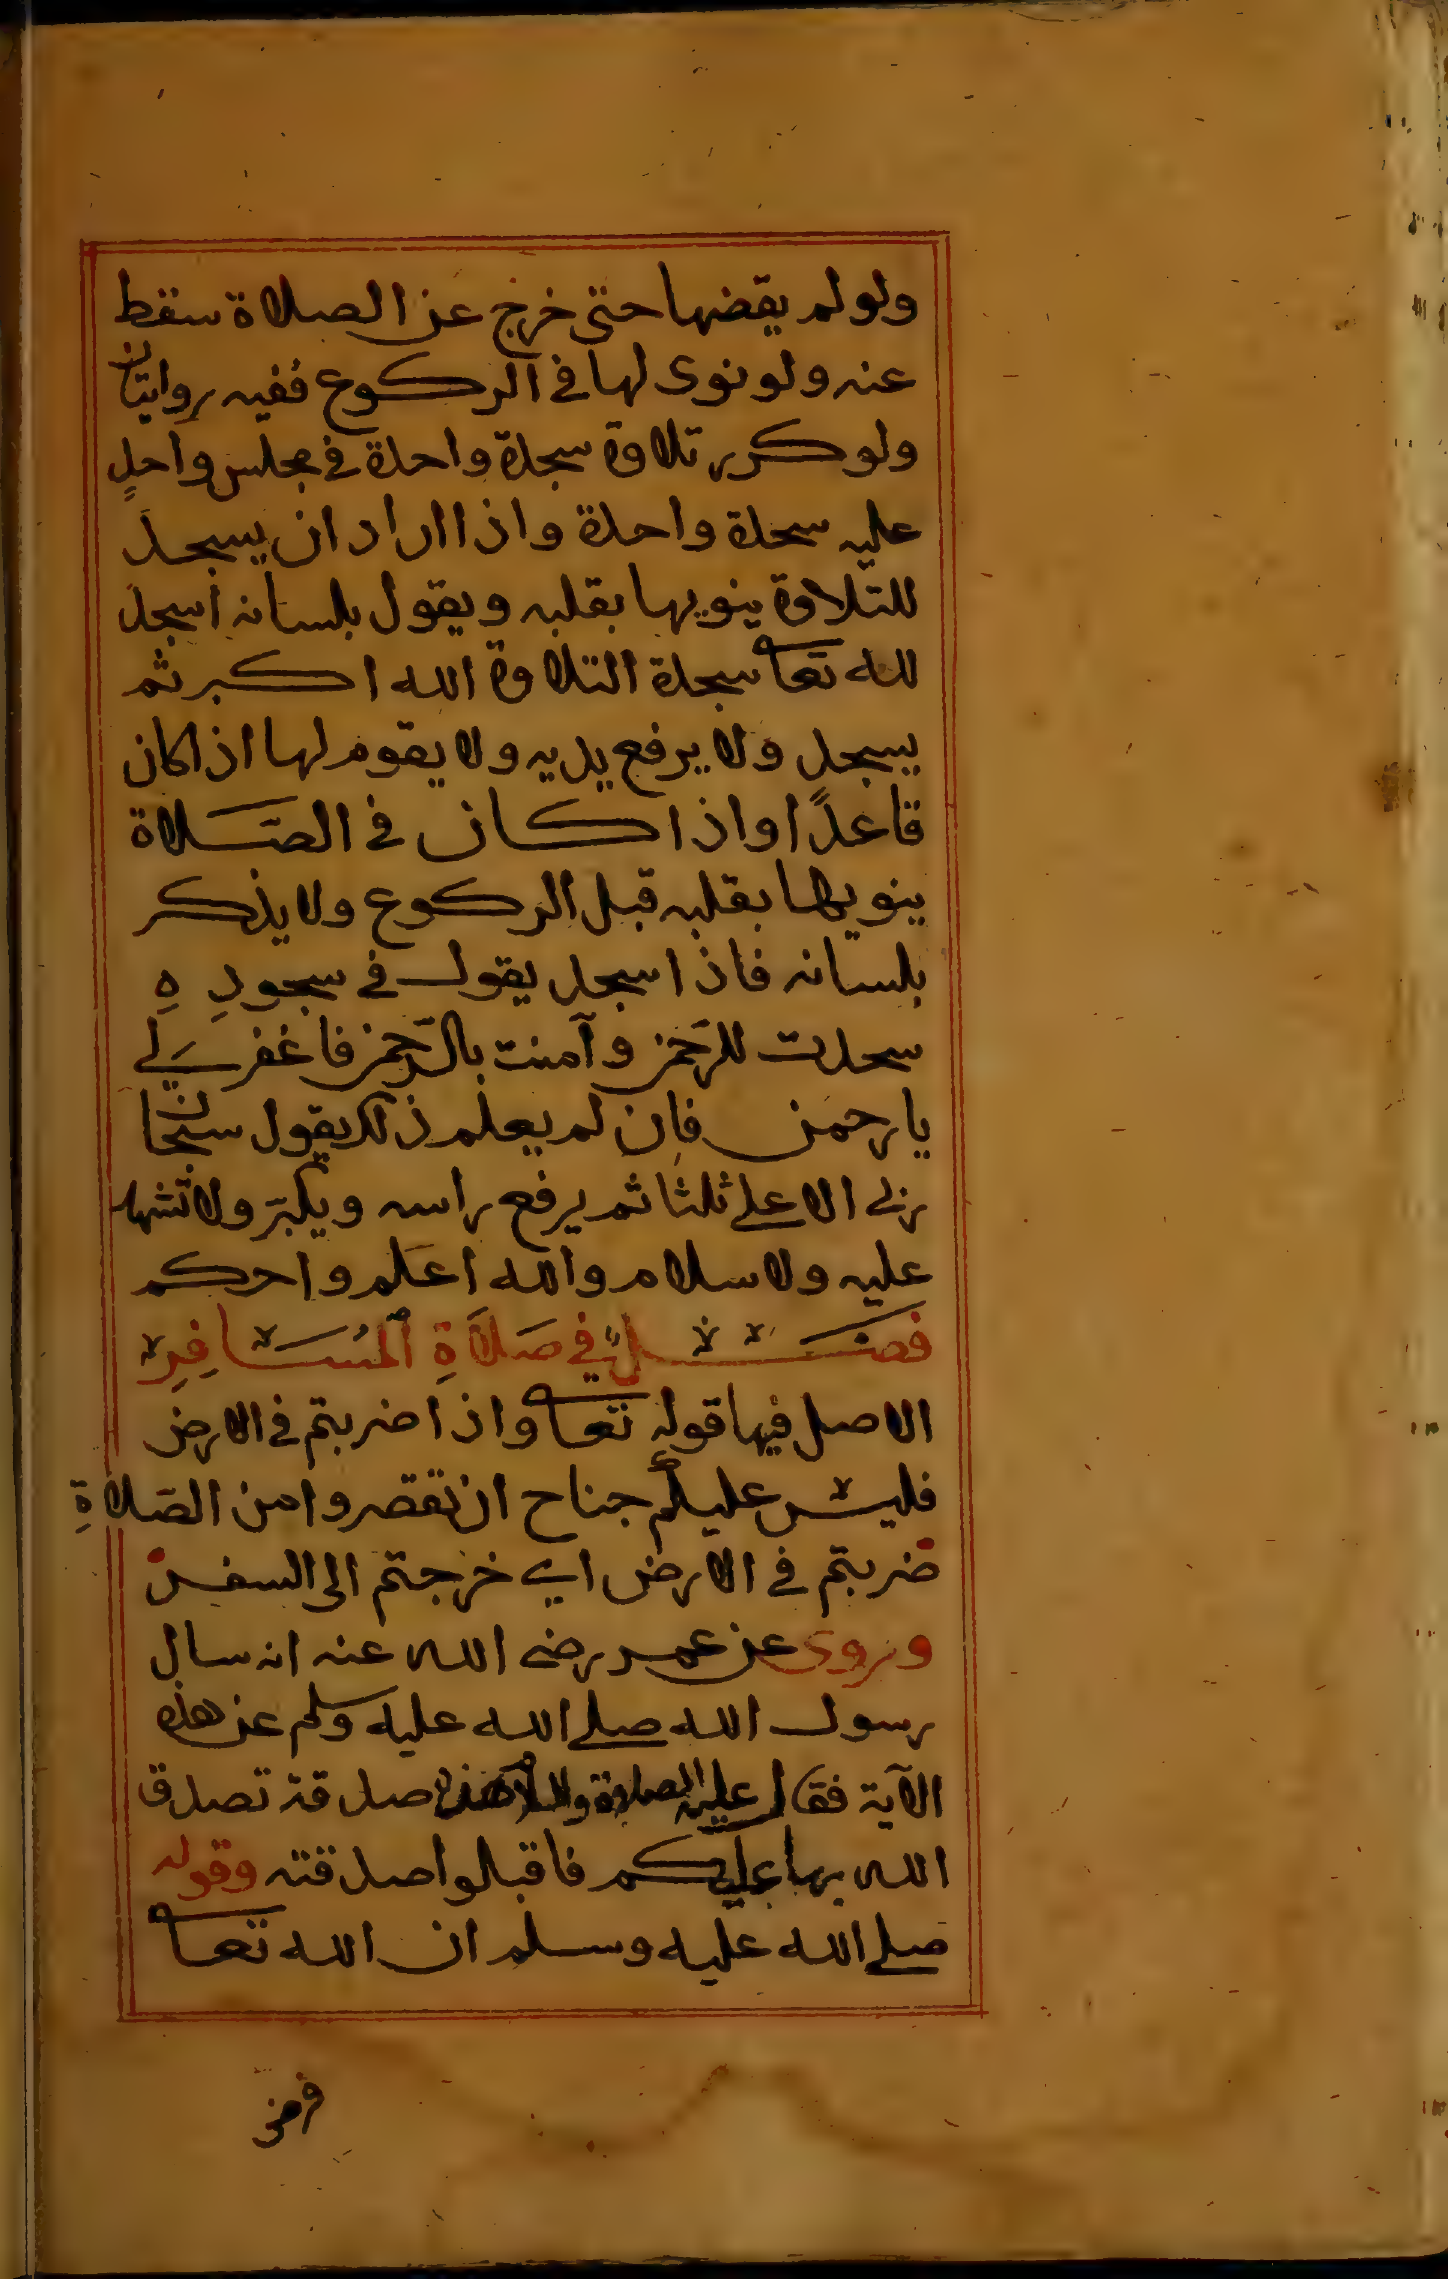 ولو لم يقضها حتى خرج عن الصلاة سقط
عنه ولو نوى لها في الركوع ففيه روايتان
ولو كرر تلاوة سجدة واحدة في مجلس واحد
عليه سجدة واحدة واذا اراد ان يسجد
للتلاوة ينويها بقلبه ويقول بلسانه اسجد
لله تعا سجدة التلاوة الله اكبر ثم
يسجد ولا يرفع يديه ولا يقوم لها اذا كان
قاعدًا واذا كان في الصَّلاة
ينويها بقلبه قبل الركوع ولا يذكر
بلسانه فاذا سجد يقول في سجودِهِ
سجدت للرَّحمن وآمنت بالرَّحمن فاغفر لي
يا رحمن فإن لم يعلم ذلك يقول سبحان
ربي الاعلى ثلثا ثم يرفع راسه ويكبّر ولا تشهد
عليه ولا سلام والله اعلم واحكم
فصلٌ في صَلاَةِ المُسَافِرِ
الاصل فيها قوله تعا واذا ضربتم في الارض
فليس عليكم جناح ان تقصروا من الصّلاةِ
ضربتم في الارض اي خرجتم الى السفر
وروى عن عمر رضى الله عنه انه سال
رسول الله صلى الله عليه وسلم عن هذه
الآية فقال عليه الصلاة والسلام هذه صدقة تصدق
الله بها عليكم فاقبلوا صدقته وقوله
صلى الله عليه وسلم ان الله تعا
فرض